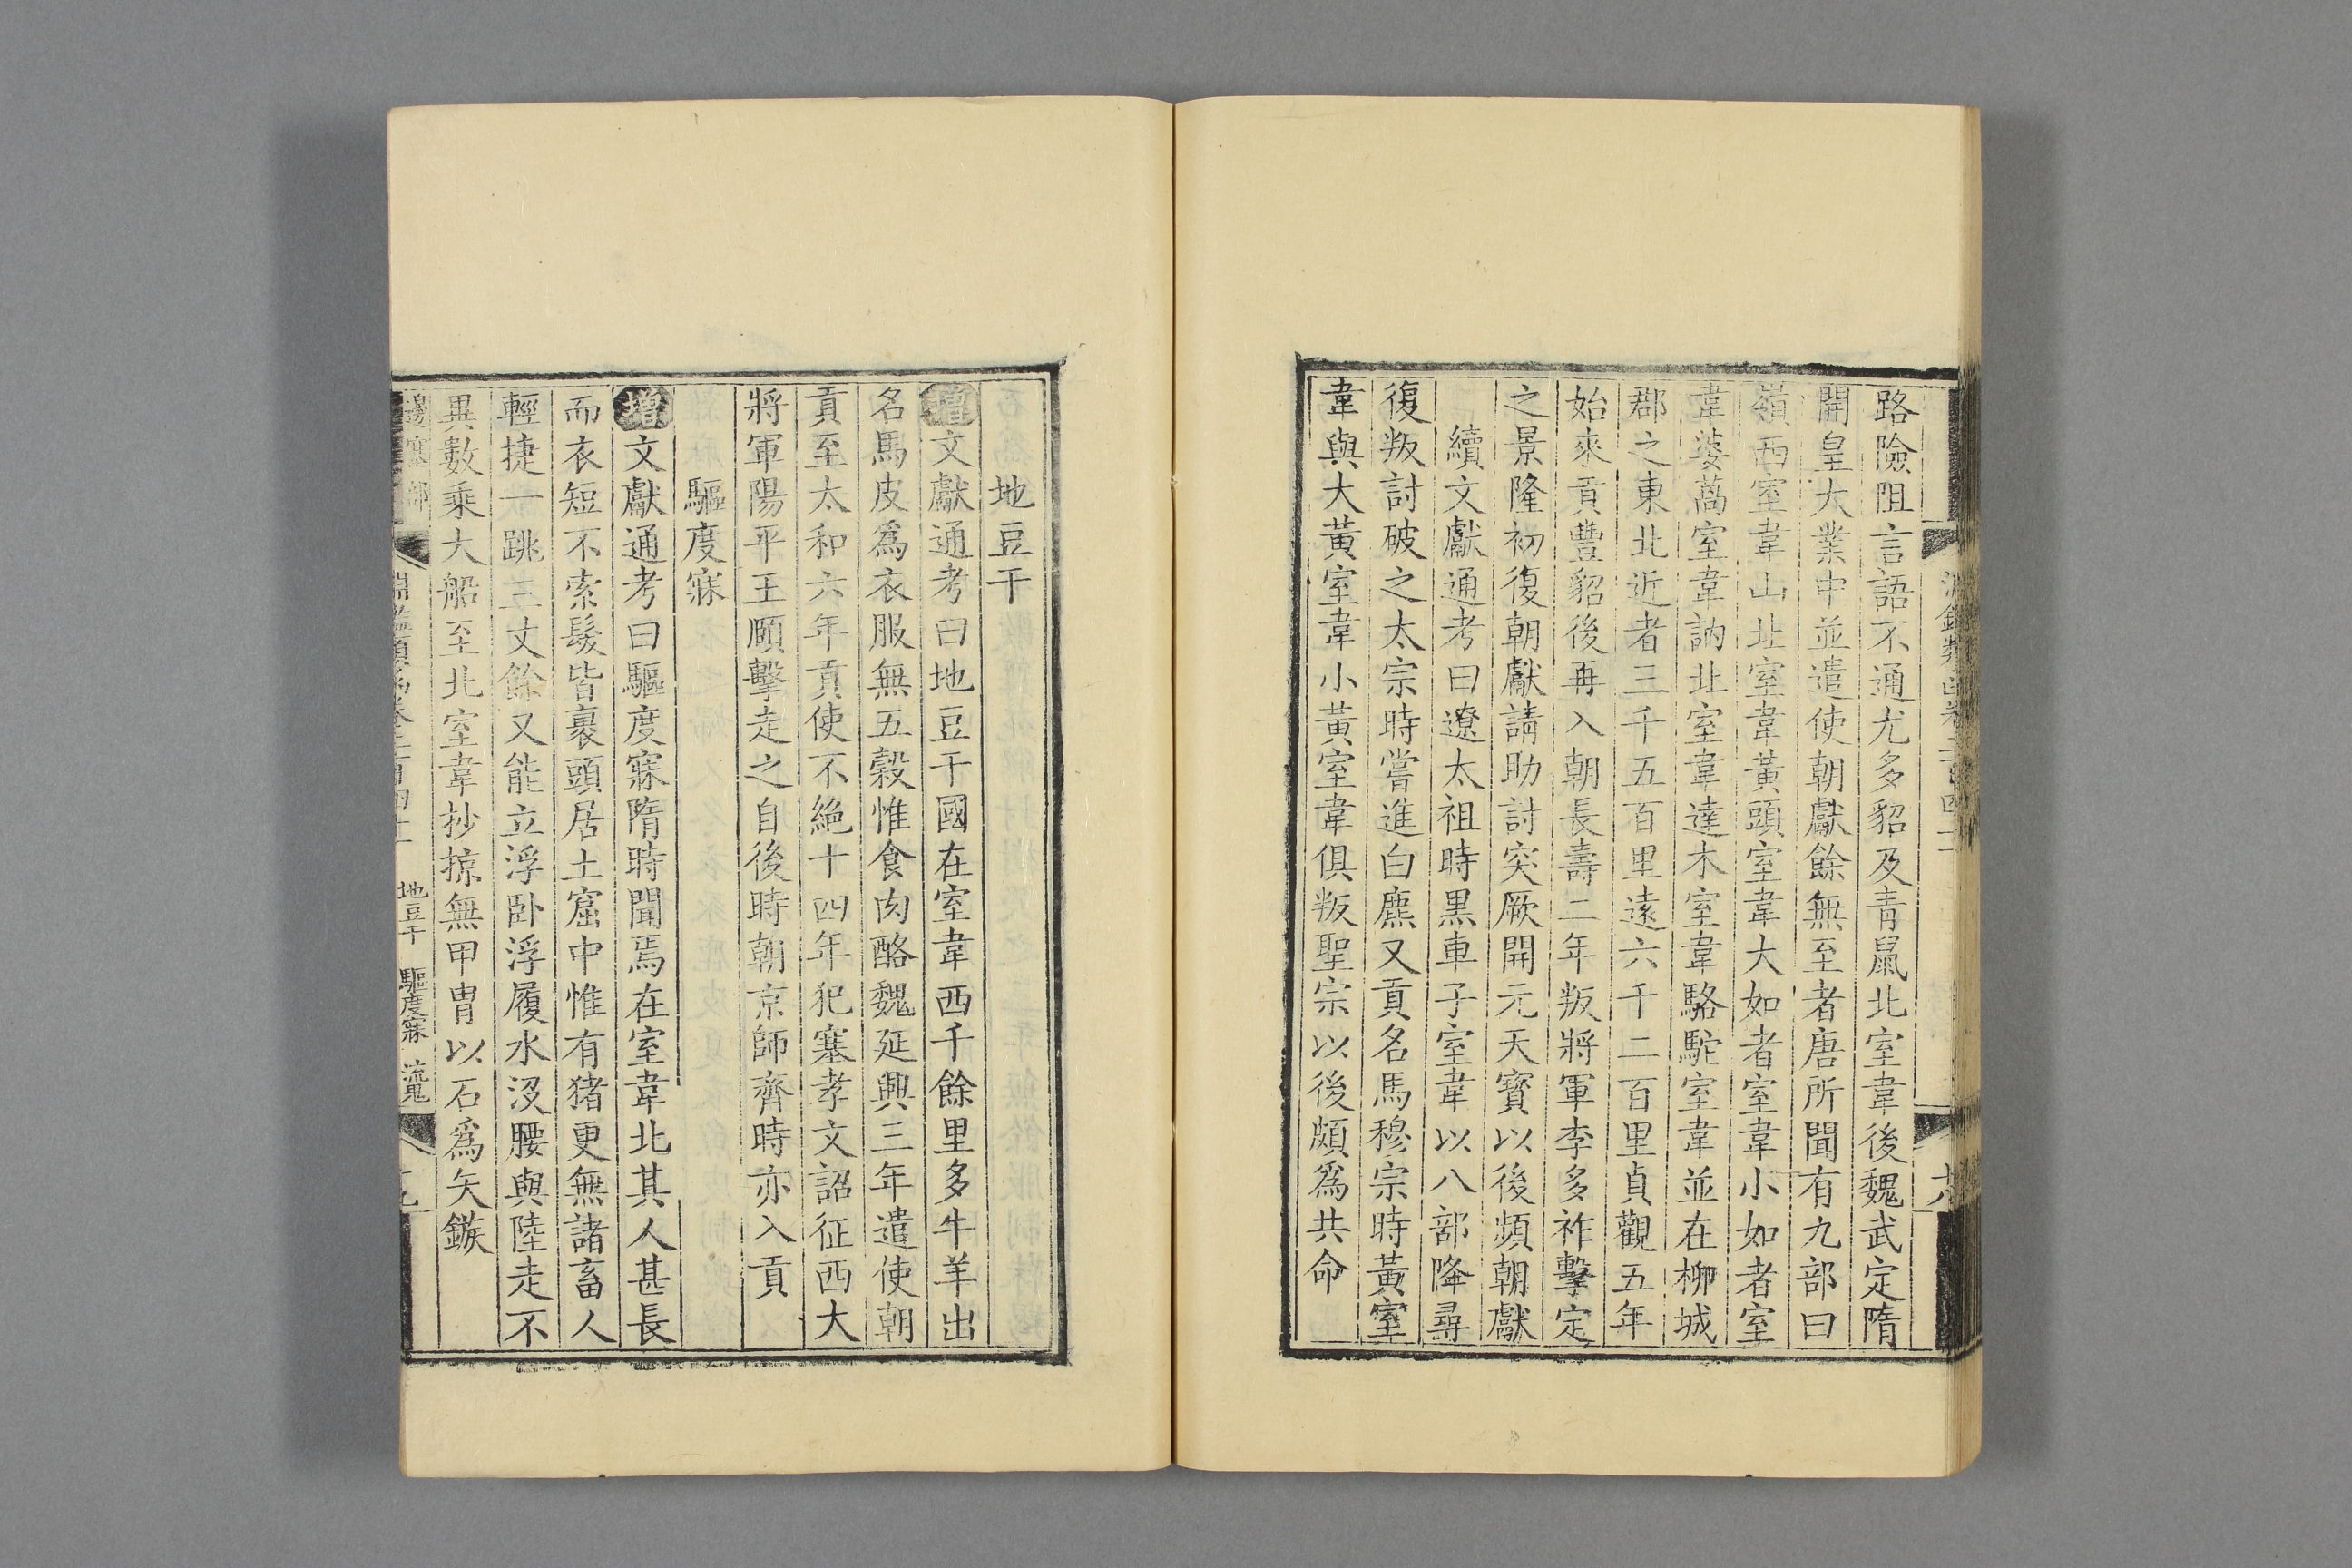 路險阻言語不通尤多貂及青鼠北室韋後魏武定隋
開皇大業中並遣使朝獻餘無至者唐所聞有九部曰
嶺西室韋山北室韋黃頭室韋大如者室韋小如者室
韋婆萵室韋訥北室韋達木室韋駱駝室韋並在柳城
郡之東北近者三千五百里遠六千二百里貞觀五年
始來貢豐貂後再入朝長壽二年叛將軍李多祚擊定
之景隆初復朝獻請助討突厥開元天寶以後頻朝獻
續文獻通考曰遼太祖時黒車子室韋以八部降尋
復叛討破之太宗時嘗進白麃又貢名馬穆宗時黃室
韋與大黃室韋小黃室韋俱叛聖宗以後頗爲共命
地豆干
增文獻通考曰地豆干國在室韋西千餘里多牛羊出
名馬皮爲衣服無五穀惟食肉酪魏延興三年遣使朝
貢至太和六年貢使不絶十四年犯塞孝文詔征西大
將軍陽平王頤擊走之自後時朝京師齊時亦入貢
驅度寐
增文獻通考曰驅度寐隋時聞焉在室韋北其人甚長
而衣短不索髮皆裹頭居土窟中惟有猪更無諸畜人
輕捷一跳三丈餘又能立浮卧浮履水沒腰與陸走不
異數乘大船至北室韋抄掠無甲冑以石爲矢鏃
邊塞部 淵鑑類函卷二百四十二 地豆干 驅度寐 流鬼